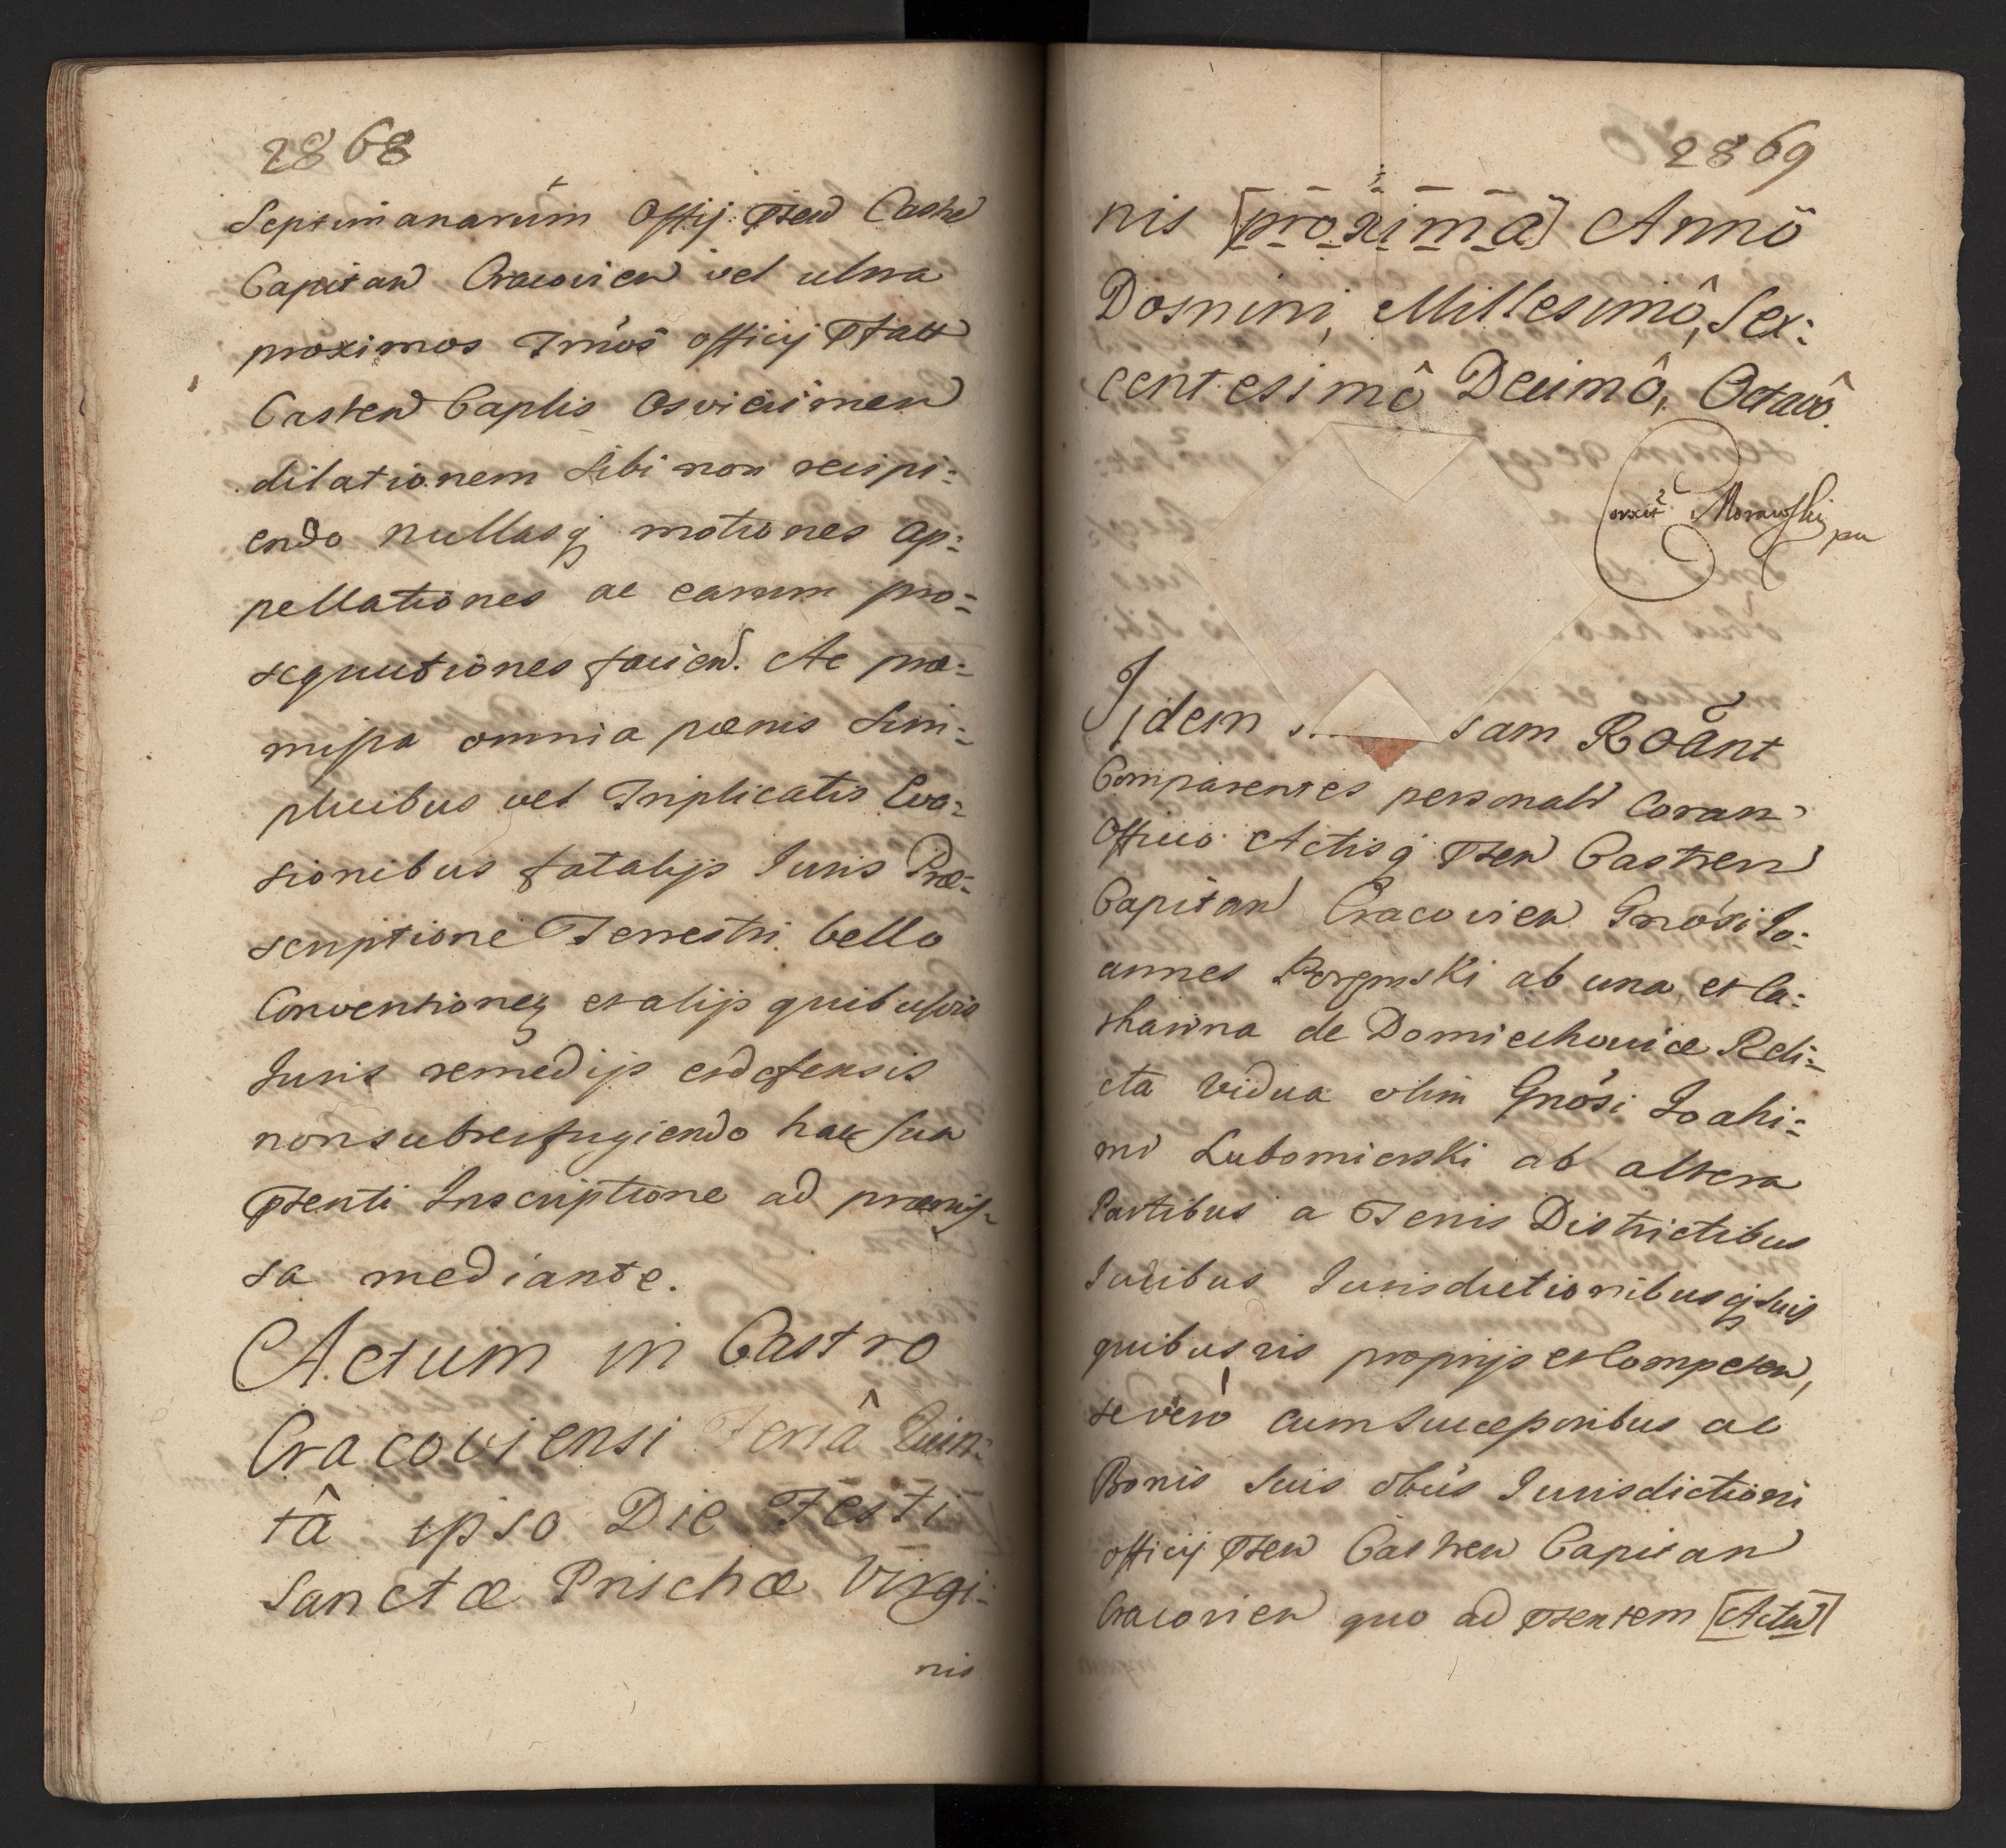 2868
Septimanarum Offij: Pſen Castre
Capitan Cracovien vel ultra
proximos Trnos officij Pſatt
Casten Captis Osviecimen
dilationem sibi non recipi:
endo nullasq motiones ap:
pellationes ac earum pro:
sequutiones facien. Ac præ:
miſsa omnia pœnis Sim:
plicibus vel Triplicatis Eva:
sionibus fatalijs Iuris Præ:
scriptione Terrestri bello
Conventioneq et alijs quibusvis
Iuris remedijs et defensis
non subrefugiendo hac sua
Pſenti Inscriptione ad præmis-
sa mediante.
Actum in Castro
Cracoviensi Feriâ Quin:
tâ ipso Die Festi
Sanctæ Prischæ Virgi:
nis
2869
nis [proximâ] Annô
Domini, Millesimô, Sex:
centesimô Decimô, Octavô.
Morawski
Idem sam Roânt
Comparentes personalr Coram
Officio Actisq Pſen Castren
Capitan Cracovien Gnosi Io:
annes ab una, et Ca:
tharina de Domiechowice Reli:
cta Vidua olim Gnosi Ioahi:
mi Lubomierski ab altera
Partibus a Terris Districtibus
Iudibus Iurisdictionibusq suis
quibusvis proprijs et Competen,
se vero cum Successoribus ac
Bonis suis obus Iurisdictioni
officij Pſen Castren Capitan
Cracovien quo ad Pſentem [Actu]